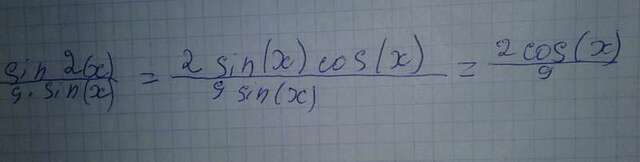 sin 2(x) / 9·sin(x) = 2 sin(x) cos(x) / 9 sin(x) = 2 cos(x) / 9